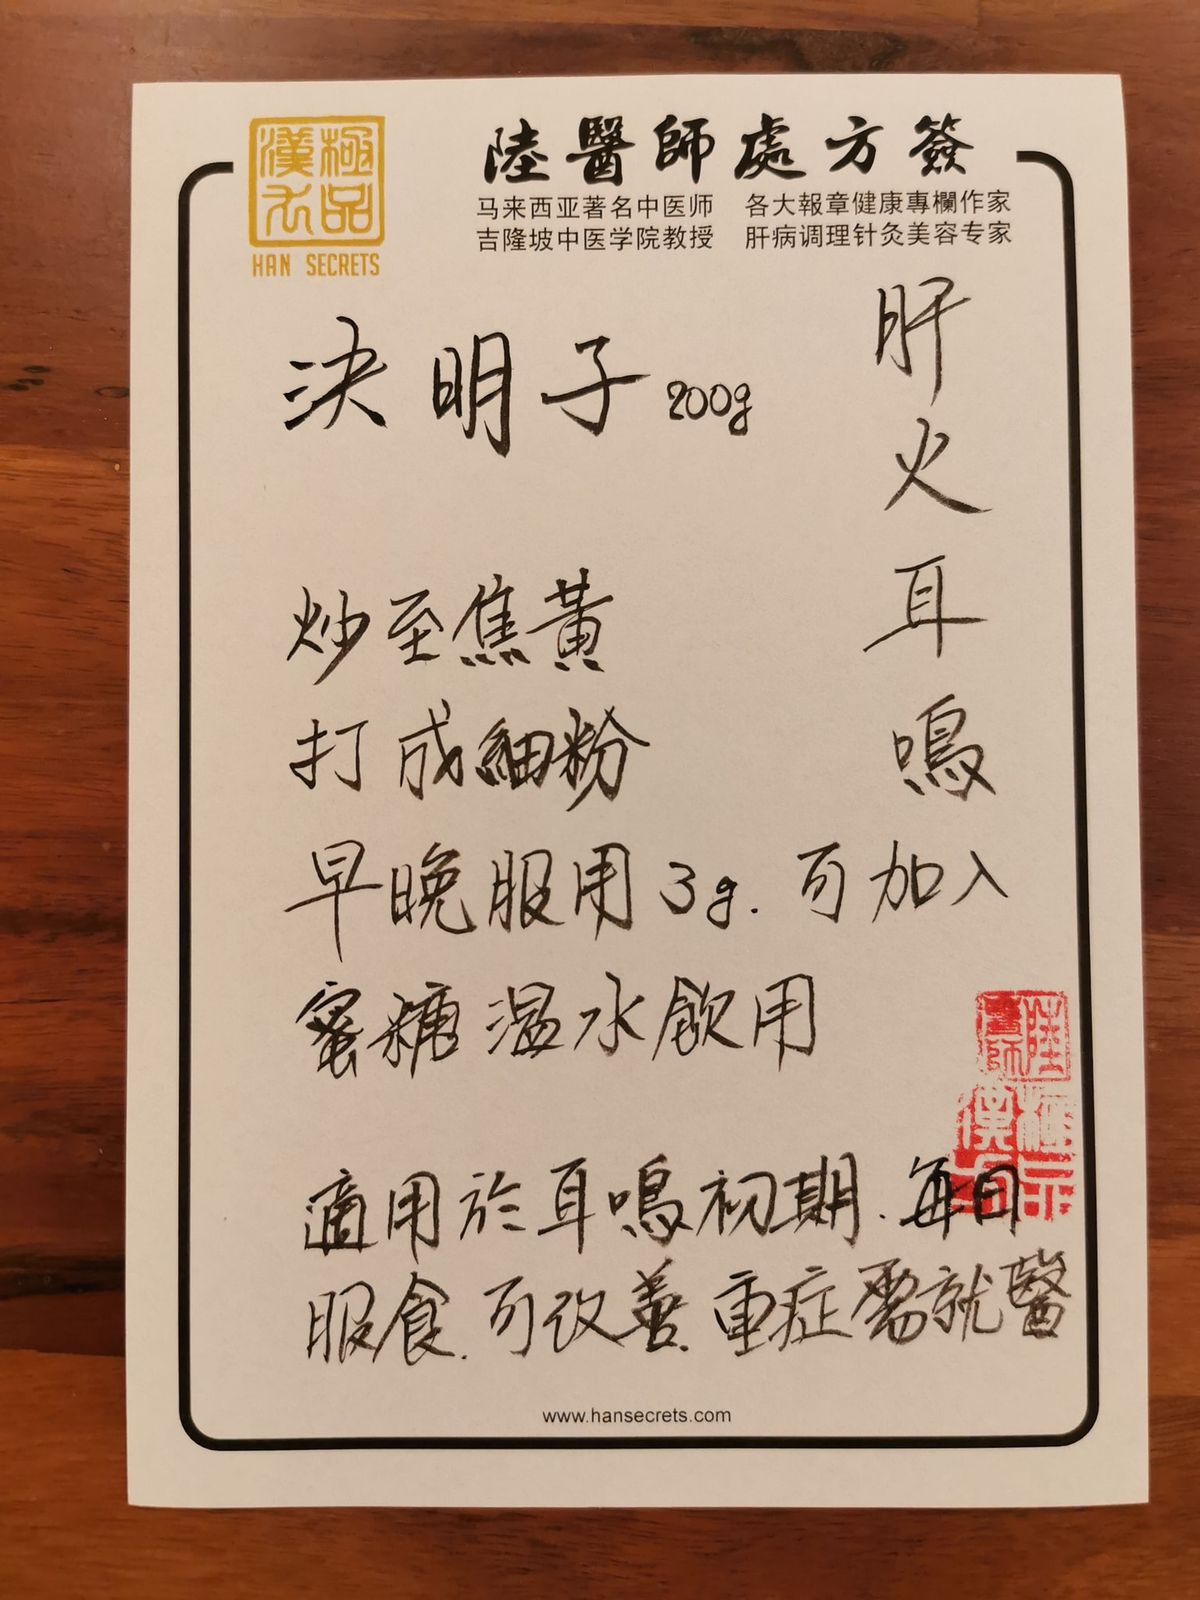 極品
漢方
HAN SECRETS
陸醫師處方簽
马来西亚著名中医师 各大報章健康專欄作家
吉隆坡中医学院教授 肝病调理针灸美容专家
肝火耳鳴
決明子 200g
炒至焦黃
打成細粉
早晚服用 3g. 可加入
蜜糖溫水飲用
陸醫師
適用於耳鳴初期. 每日
服食. 可改善. 重症需就醫
www.hansecrets.com